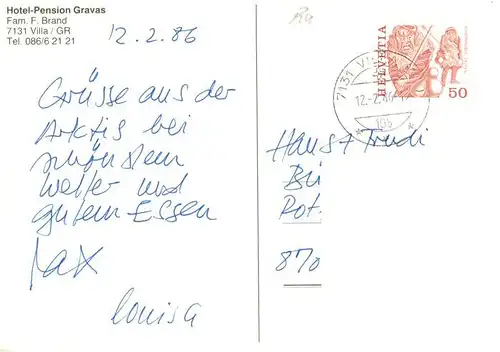 Hotel-Pension Gravas
Fam. F. Brand
7131 Villa / GR
Tel. 086/6 21 21
12.2.86
Grüsse aus der
Arktis bei
schönstem
Wetter und
gutem Essen
Max
Louisa
HELVETIA
50
7131 VI
12.-2.
Hans + Trudi
Bü
Rot.
870